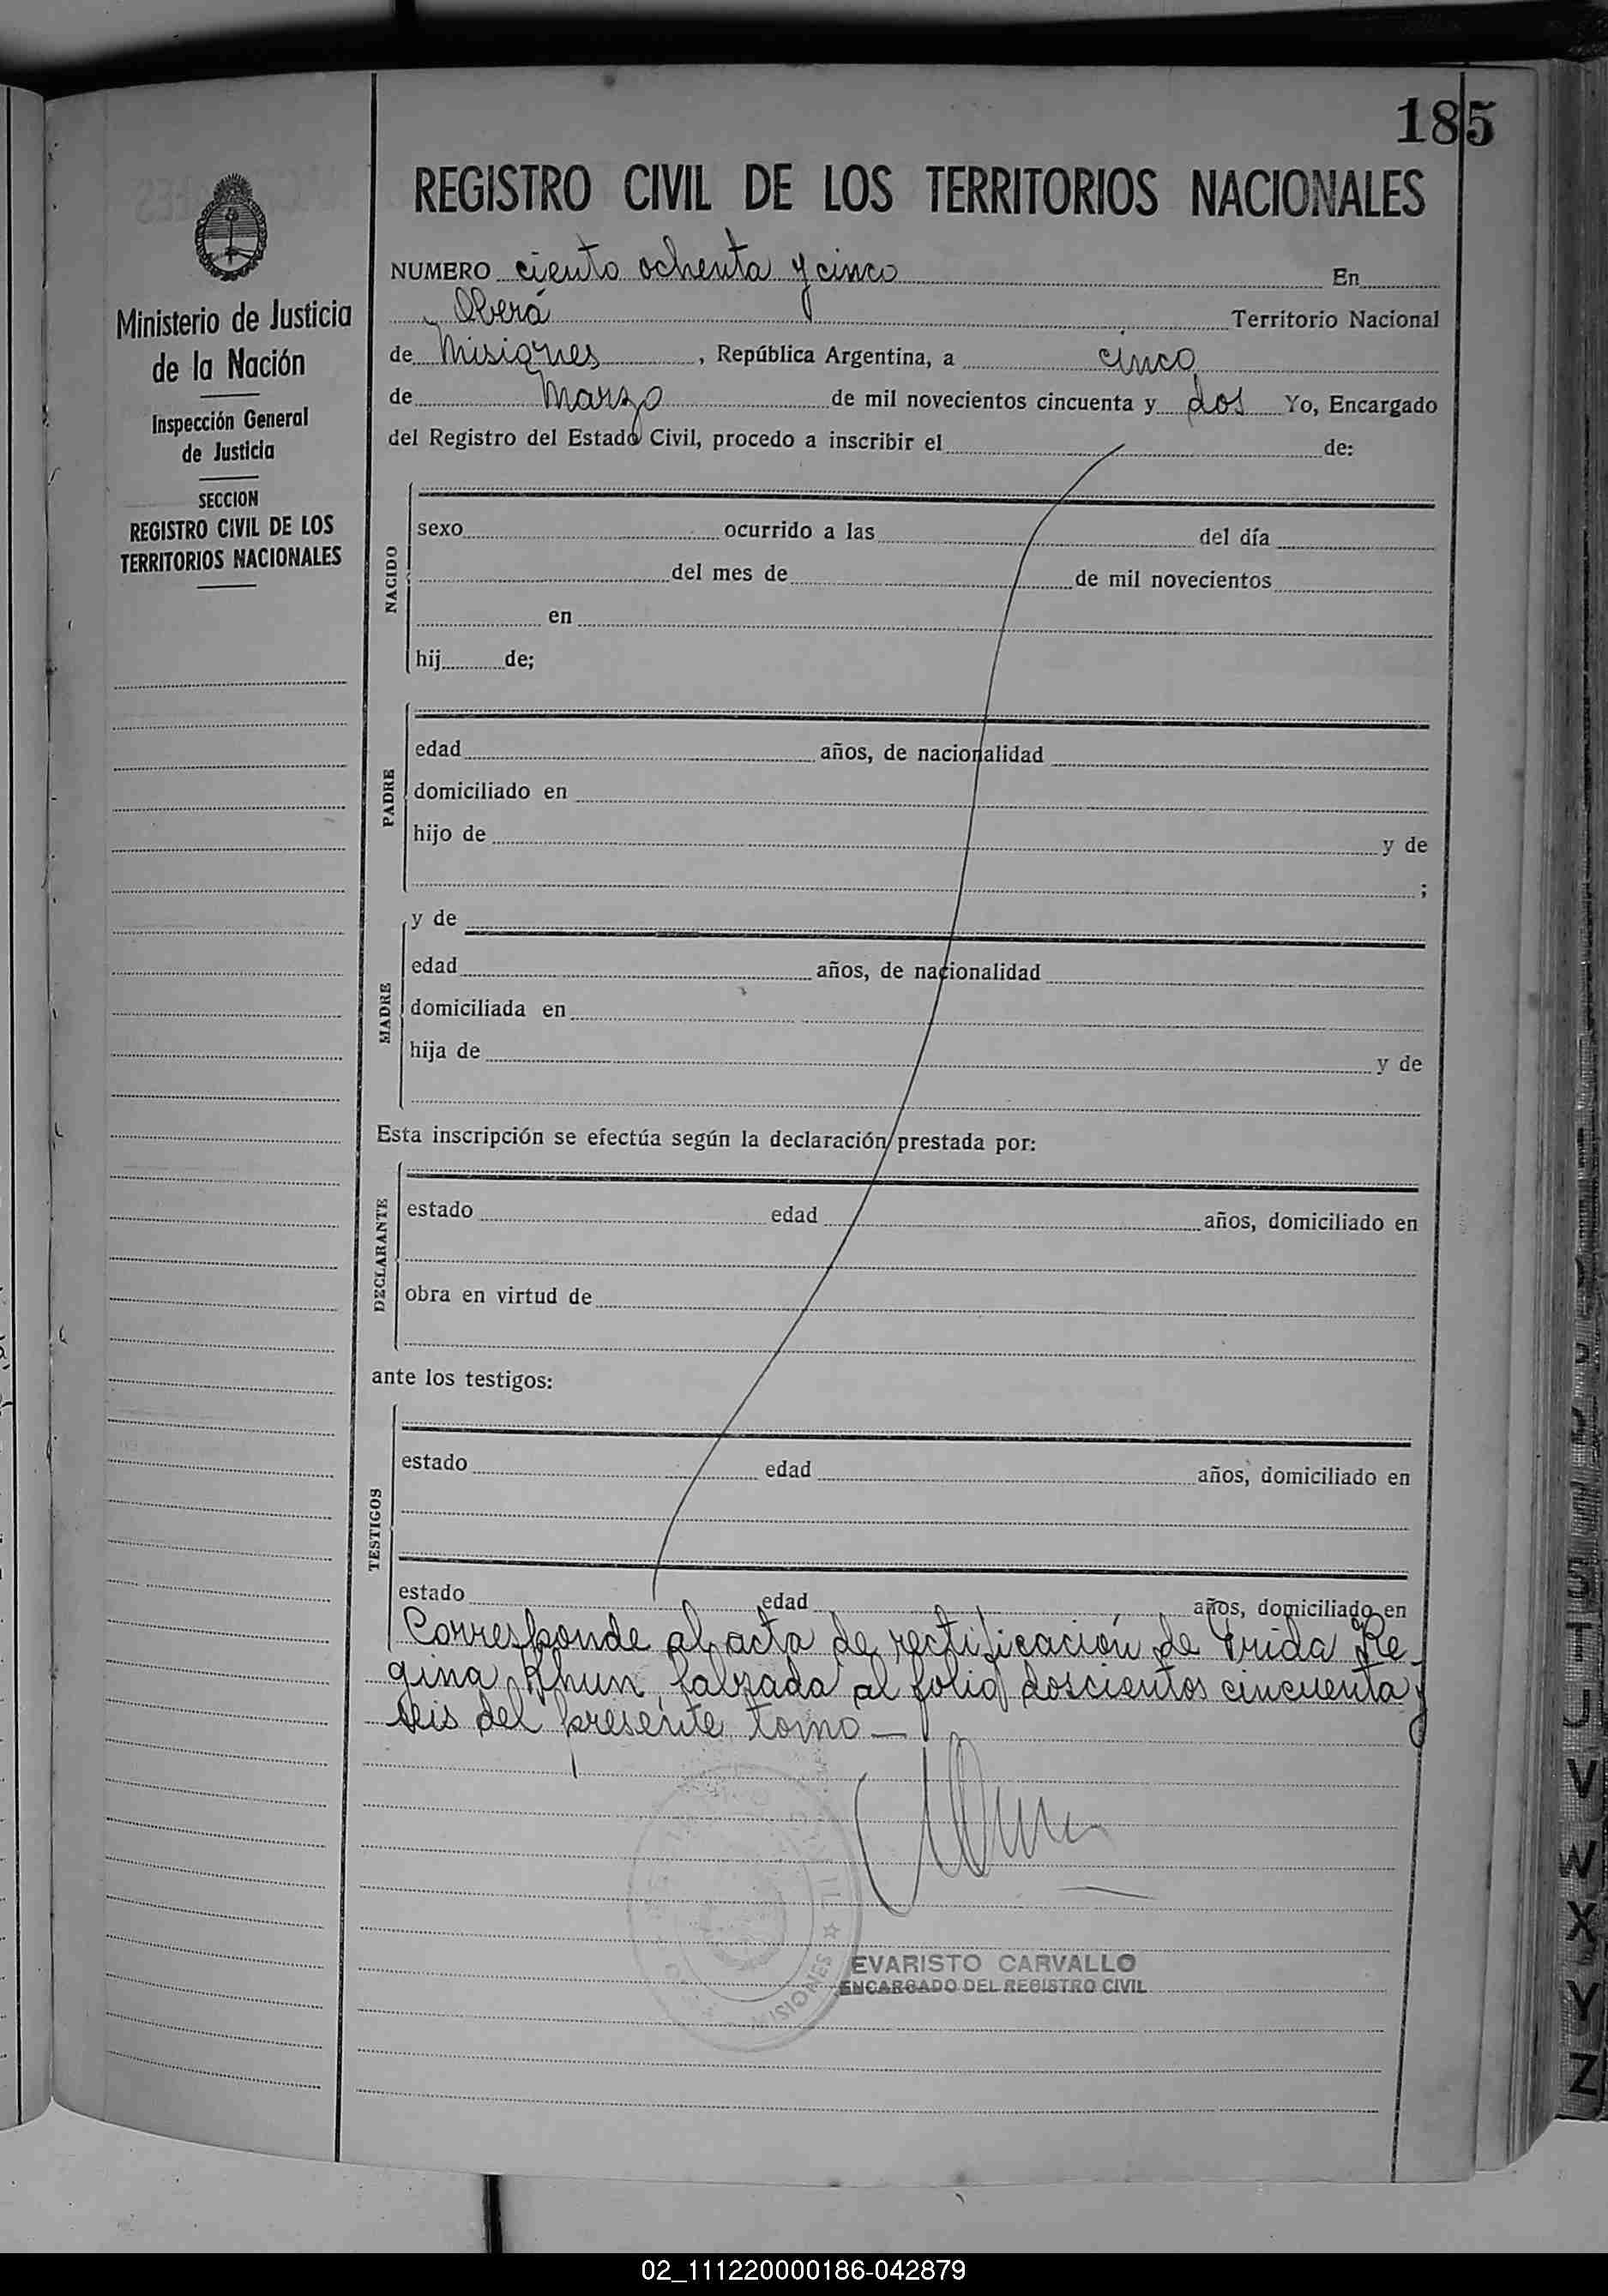 185
REGISTRO CIVIL DE LOS TERRITORIOS NACIONALES
Ministerio de Justicia
de la Nación
Inspección General
de Justicia
SECCION
REGISTRO CIVIL DE LOS
TERRITORIOS NACIONALES
NUMERO ciento ochenta y cinco En
Oberá Territorio Nacional
de Misiones, República Argentina, a cinco
de Marzo de mil novecientos cincuenta y dos Yo, Encargado
del Registro del Estado Civil, procedo a inscribir el de:
NACIDO
sexo ocurrido a las del día
del mes de de mil novecientos
en
hij de;
PADRE
edad años, de nacionalidad
domiciliado en
hijo de y de
;
MADRE
y de
edad años, de nacionalidad
domiciliada en
hija de y de
Esta inscripción se efectúa según la declaración prestada por:
DECLARANTE
estado edad años, domiciliado en
obra en virtud de
ante los testigos:
TESTIGOS
estado edad años, domiciliado en
estado edad años, domiciliado en
Corresponde al acta de rectificación de Re-
gina Khun, labrada al folio doscientos cincuenta y
seis del presente tomo—
MISIONES
EVARISTO CARVALLO
ENCARGADO DEL REGISTRO CIVIL
S
T
U
V
W
X
Y
Z
02_111220000186-042879